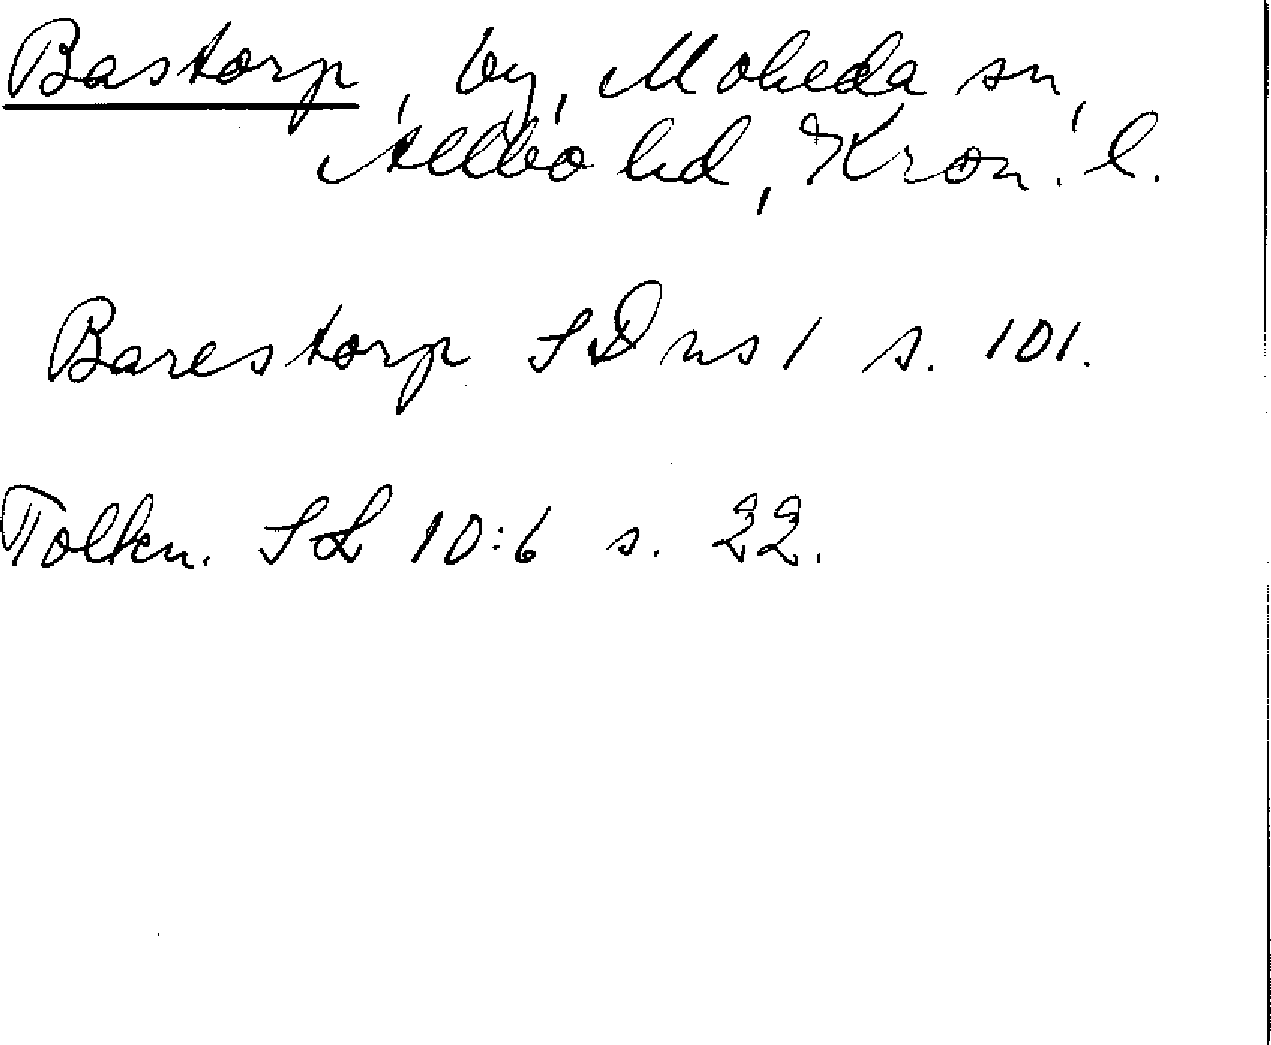 Bastorp, by, Moheda sn,
Allbo hd, Kron. l.
Barestorp SD ns 1 s. 101.
Tolkn. SL 10:6 s. 22.